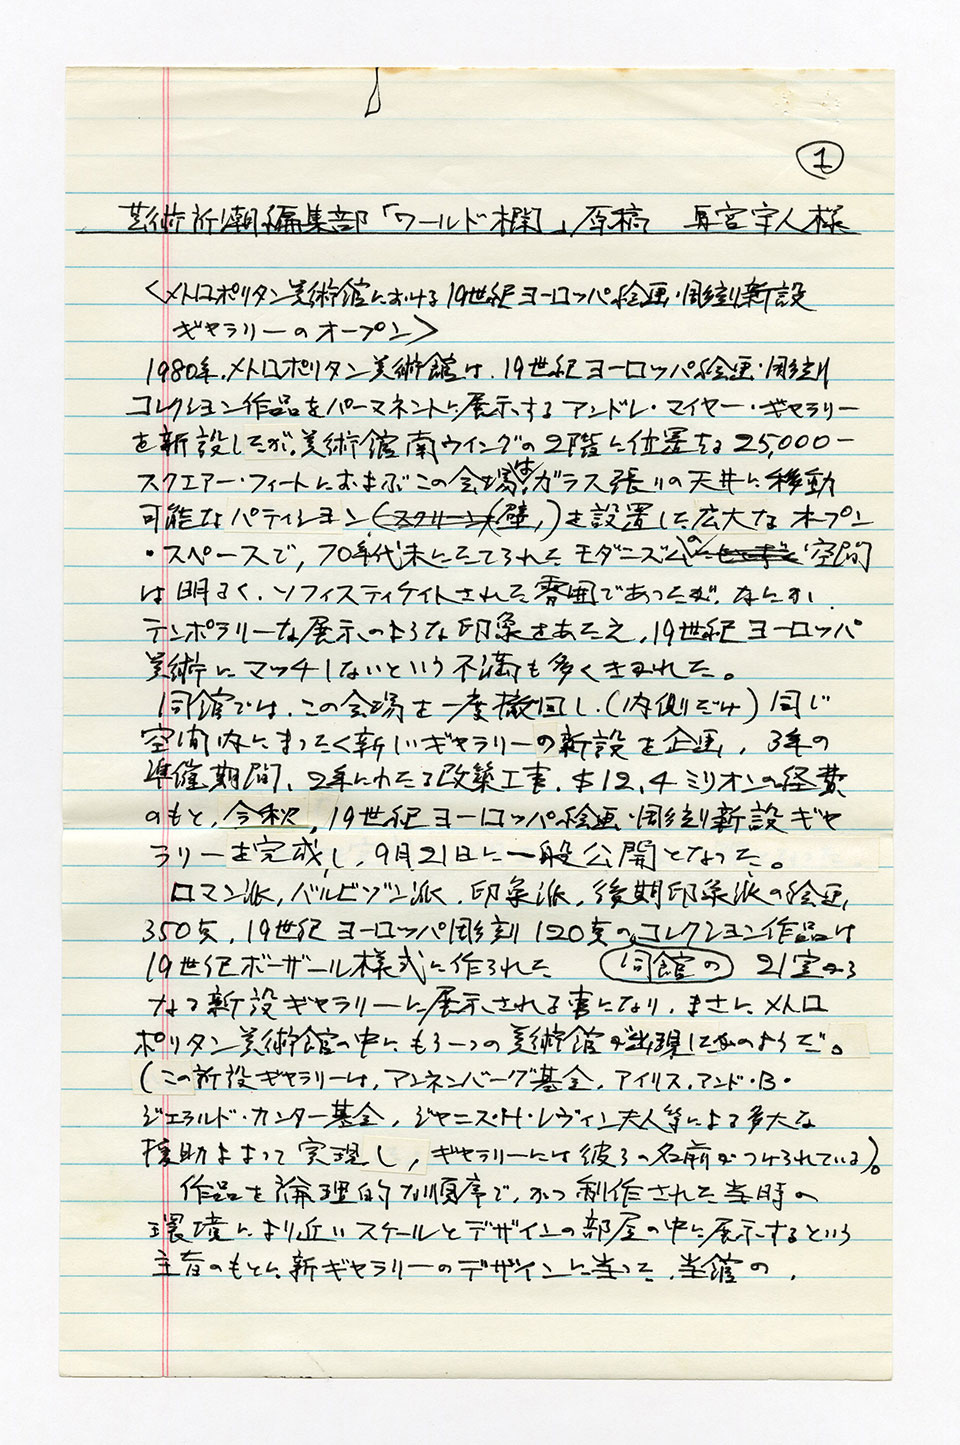 1
芸術新潮編集部「ワールド欄」原稿 真宮宇人様
<メトロポリタン美術館における19世紀ヨーロッパ絵画・彫刻新設
ギャラリーのオープン>
1980年、メトロポリタン美術館は、19世紀ヨーロッパ絵画・彫刻
コレクション作品をパーマネントに展示するアンドレ・マイヤー・ギャラリー
を新設したが、美術館南ウイングの2階に位置する25,000-
スクエアー・フィートにおよぶこの会場は、ガラス張りの天井に移動
可能なパティション(スクリーン)(壁)を設置した広大なオープン
・スペースで、70年代末にたてられたモダニズムの空間
は明るく、ソフィスティケイトされた雰囲気であったが、なにか
テンポラリーな展示のような印象をあたえ、19世紀ヨーロッパ
美術にマッチしないという不満も多くきかれた。
同館では、この会場を一度撤回し、(内側だけ)同じ
空間内にまったく新しいギャラリーの新設を企画、3年の
準備期間、2年にわたる改築工事、$12.4ミリオンの経費
のもと、今秋、19世紀ヨーロッパ絵画・彫刻新設ギャ
ラリーを完成し、9月21日に一般公開となった。
ロマン派、バルビゾン派、印象派、後期印象派の絵画、
350点、19世紀ヨーロッパ彫刻120点のコレクション作品は
19世紀ボーザール様式に作られた 同館の 21室から
なる新設ギャラリーに展示される事になり、まさにメトロ
ポリタン美術館の中にもう一つの美術館が出現したかのようだ。
(この新設ギャラリーは、アンネンバーグ基金、アイリス・アンド・B・
ジェラルド・カンター基金、ジャニス・H・レヴィン夫人等による多大な
援助によって実現し、ギャラリーには彼らの名前がつけられている)。
作品を論理的な順序で、かつ制作された当時の
環境により近いスケールとデザインの部屋の中に展示するという
主旨のもとに新ギャラリーのデザインに当って、当館の、